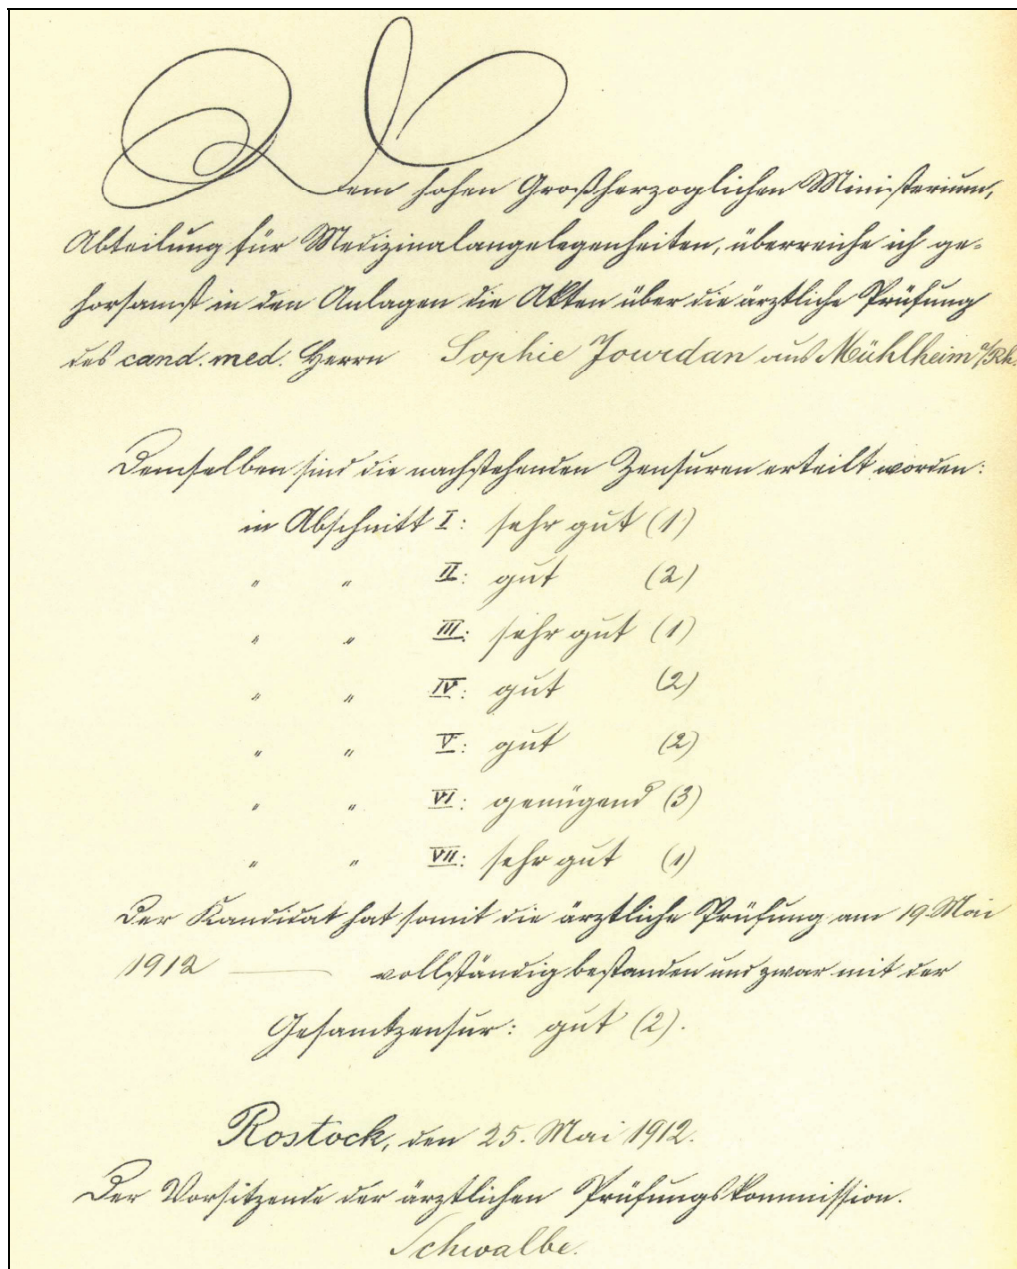 Dem hohen Großherzoglichen Ministerium,
Abteilung für Medizinalangelegenheiten, überreiche ich ge-
horsamst in den Anlagen die Akten über die ärztliche Prüfung
des cand. med. Herrn Sophie Jourdan aus Mühlheim a/Rh.
Demselben sind die nachstehenden Zensuren erteilt worden:
in Abschnitt I: sehr gut (1)
" " II: gut (2)
" " III: sehr gut (1)
" " IV: gut (2)
" " V: gut (2)
" " VI: genügend (3)
" " VII: sehr gut (1)
Der Kandidat hat somit die ärztliche Prüfung am 19. Mai
1912 — vollständig bestanden und zwar mit der
Gesamtzensur: gut (2).
Rostock, den 25. Mai 1912.
Der Vorsitzende der ärztlichen Prüfungskommission.
Schwalbe.